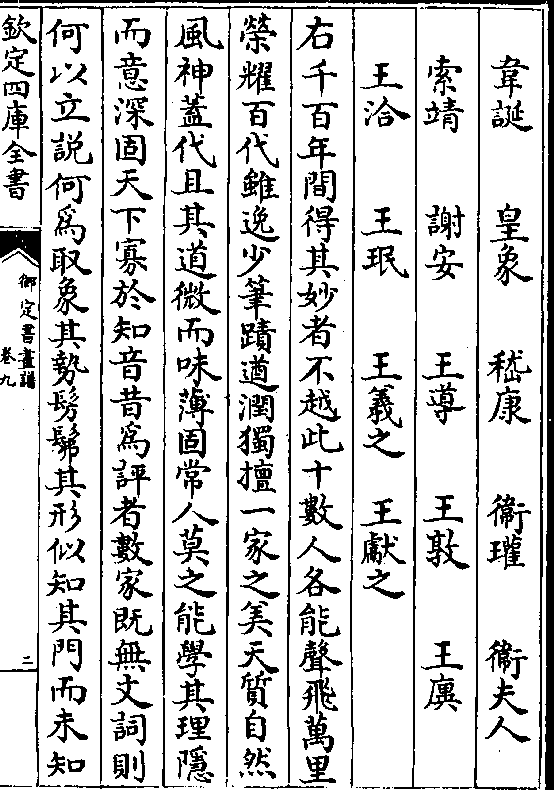 韋誕 皇象 嵇康 衞瓘 衞夫人
索靖 謝安 王導 王敦 王廙
王洽 王珉 王羲之 王獻之
右千百年間得其妙者不越此十數人各能聲飛萬里
榮耀百代雖逸少筆蹟遒潤獨擅一家之美天質自然
風神蓋代且其道微而味薄固常人莫之能學其理隱
而意深固天下寡於知音昔為評者數家既無文詞則
何以立說何爲取象其勢髣髴其形似知其門而未知
欽定四庫全書
御定書畫譜
卷九
三